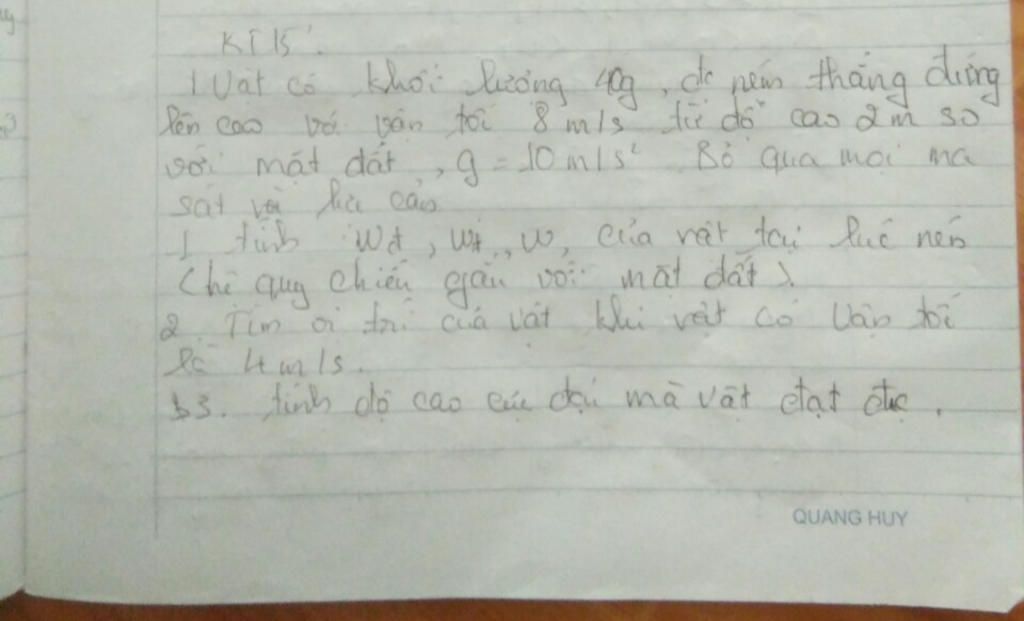 KT 15'.
1 Vật có khối lượng 40g, đc ném thẳng đứng
lên cao với vận tốc 8 m/s từ độ cao 2m so
với mặt đất, g = 10 m/s² Bỏ qua mọi ma
sát và lực cản
1 tính Wđ, Wt, W, của vật tại lúc ném
(hệ quy chiếu gắn với mặt đất).
2 Tìm vị trí của vật khi vật có vận tốc
là 4 m/s.
3. tính độ cao cực đại mà vật đạt đc.
QUANG HUY